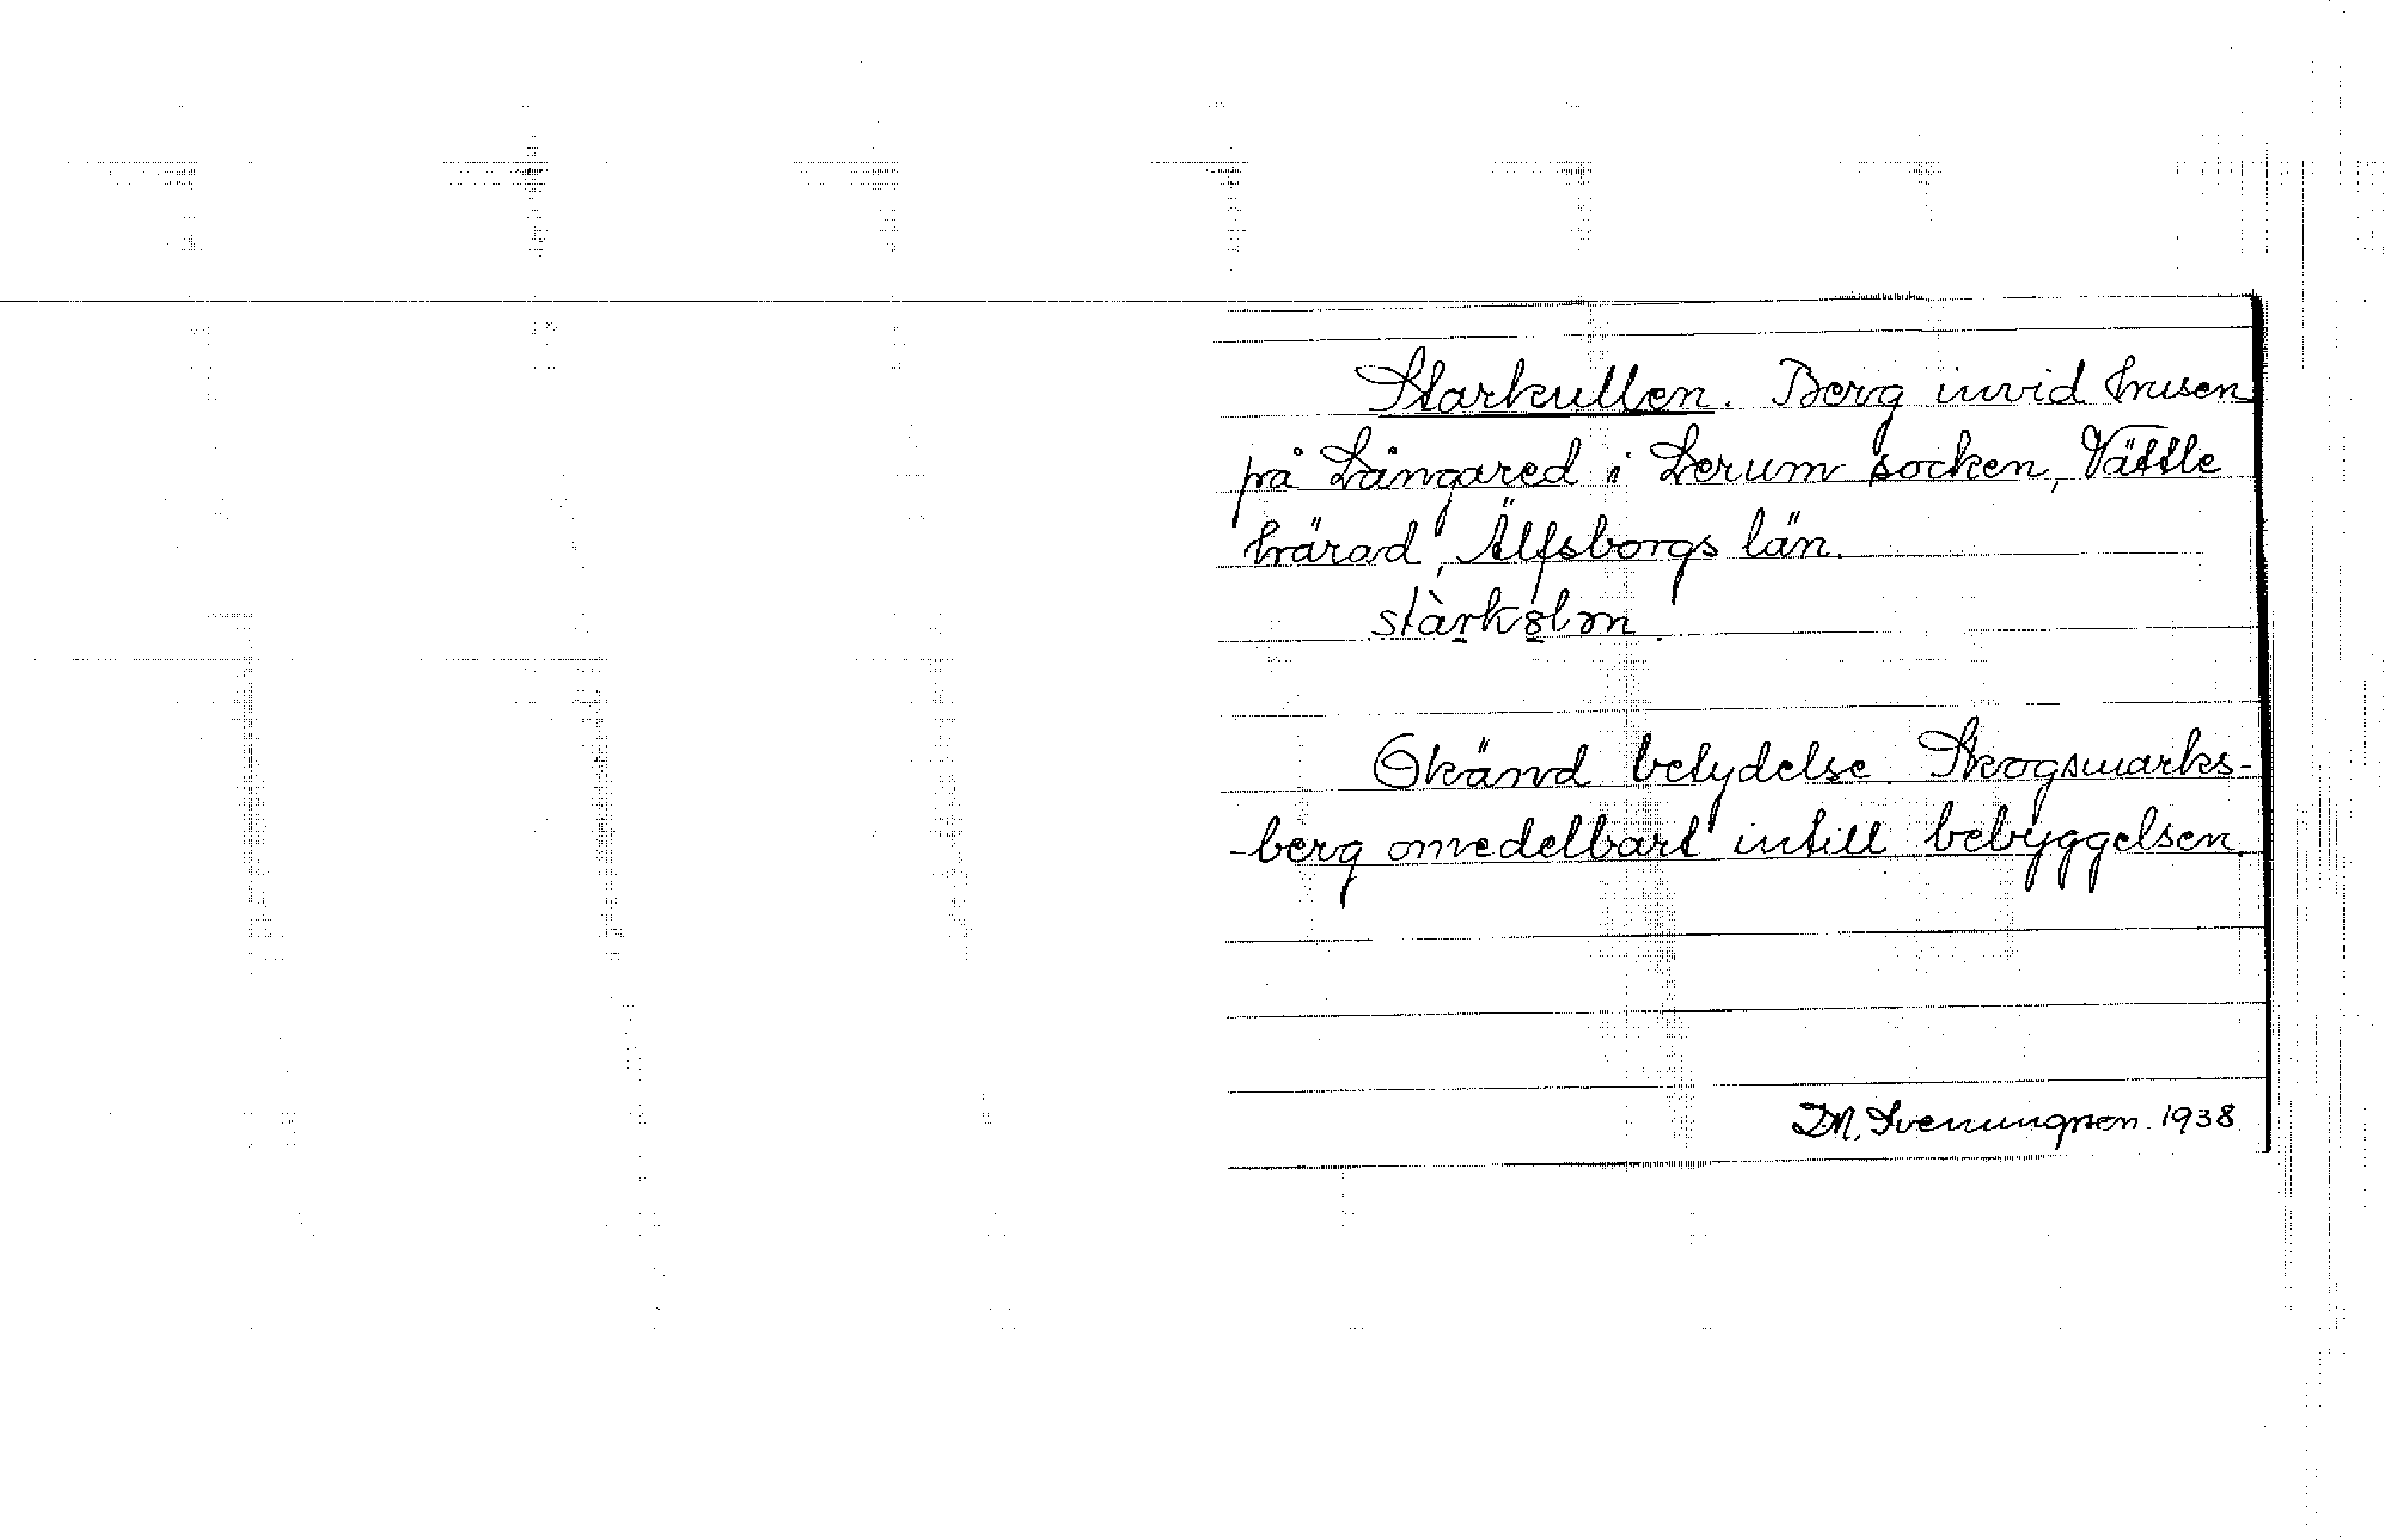 Starkullen. Berg invid husen
på Långared i Lerum socken, Vättle
härad, Älfsborgs län.
stàrkələn
Okänd betydelse. Skogsmarks-
-berg omedelbart intill bebyggelsen.
D.N. Svenungsson. 1938